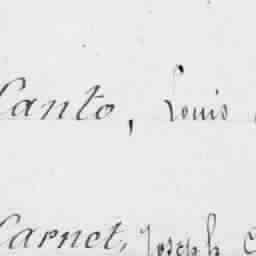 Canto, Louis
Carnet, Joseph